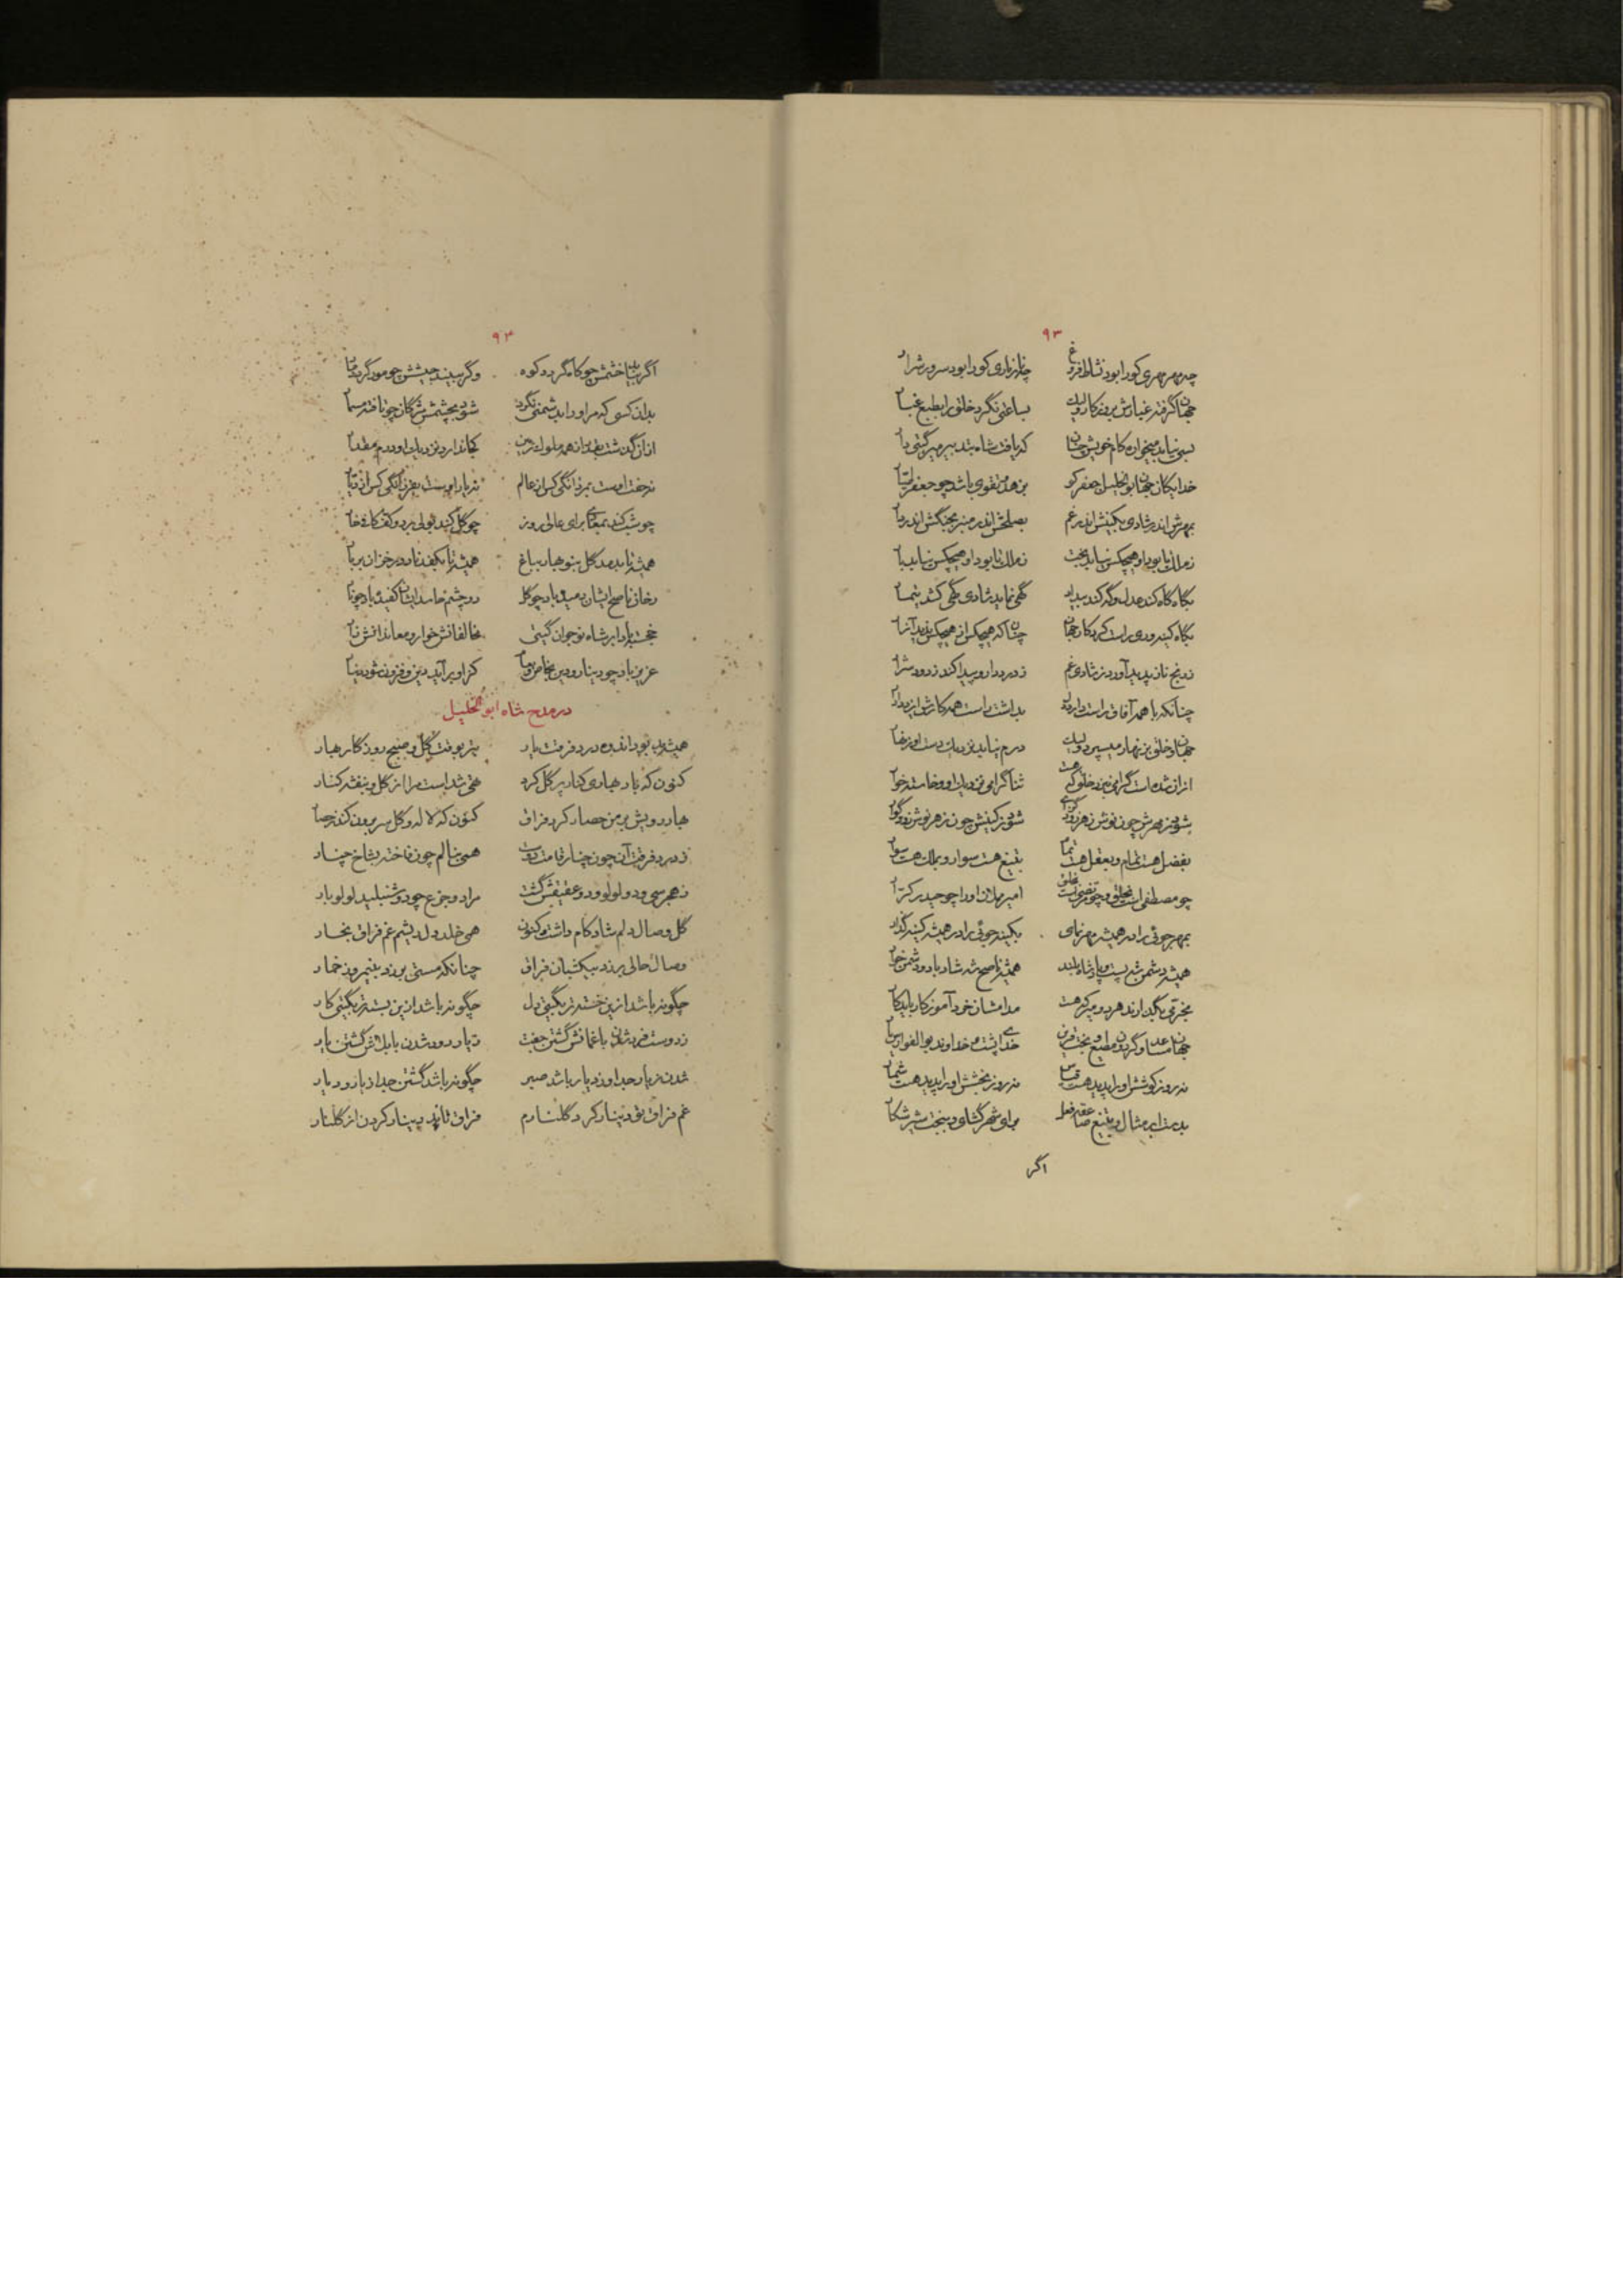 ۹۳
چه مهر مهری کورا بود نشاط فروغ چه نار ناری کورا بود سرور شرار
جهان گرفته غبارش بروزکار ولیک بساعتی نگرد خلق را بطبع غبار
بسی نیابد میخواره کام خویش چنان که یافت شاه
خدایگان جهان بوالخلیل جعفر کو بزهد و تقوی باشد چو جعفر طیار
بمهرش اندر شادی بکینش اندر غم بصلحش اندر منبر بجنگش اندر دار
ز ملک تا بود او هیچکس نیابد بخت ز ملک تا بود او هیچکس نیابد بار
بگاه گاه کند عدل و گه کند بیداد گهی نماید شادی گهی کشد تیمار
بگاه کینه وری راست کردکار جهان چنان که هیچکس از هیچکس ندید آزار
ز رنج ناز پدید آورد ز شادی غم ز درد دارو پیدا کند ز دود شرار
چنانکه با همه آفاق راست دارد دل بداشت راست همه کارش ایزد دادار
جهان و خلق بزنهار میسپرد ولیک درم نیابد نزدیک دست او زنهار
از آن شده است گرامی بنزد خلق که هست ثنا گرامی نزدیک او و خواسته خوار
شود ز مهرش چون نوش زهر زود گزای شود ز کینش چون زهر نوش زود گوار
بفضل هست تمام و بعقل هست تمام بتیغ هست سوار و بملک هست سوار
چو مصطفی است بخلق و چو مرتضی است بخلق امیر مهلان او را چو حیدر کرار
بمهرجوئی برادر همیشه مهر نمای بکینه جوئی برادر همیشه کینه گذار
همیشه دشمن شه پست باد و شاه بلند همیشه ناصح شه شاد باد و دشمن خوار
بخرمی بگذارند هر دو میر که هست مدامشان خرد آموزگار باید کار
جهان مساعد و گردون مطیع و بخت قرین خدای پشت و خداوند بوالفوارس یار
نه روز کوشش او را پدید هست قیاس نه روز بخشش او را پدید هست شمار
بدست ابر مثال و بتیغ صاعقه فعل برای شهر گشای و ببخت شیر شکار
اگر
۹۴
اگر بتابد خشمش چو کاه گردد کوه وگر ببیند جیشش چو مور گردد مار
بدان کسی که مر او را بدشمنی نگرد شود بچشمش مژگان چو تافته مسمار
از آن گذشت بمقدار از همه ملوک زمین کجا ندارد نزدیک او درم مقدار
نه جفت اوست بمردانگی کس از عالم نه یار اوست بفرزانگی کس از دیار
چو شب کند بمعادی برای عالی روز چو گل کند بولی بر دو کف کافی خار
همیشه تا بدمد گل بنوبهار بباغ همیشه تا بکفد نار در خزان بر بار
رخان ناصح ایشان دمیده باد چو گل دو چشم حاسد ایشان کفیده باد چو نار
خجسته باد ابر شاه نوجوان گیتی مخالفانش خوار و معاندانش زار
عزیز باد چو دینار و دین بخاص و بعام کز او برآید دین و فزون شود دینار
در مدح شاه ابوالخلیل
همیشه بود اندوه درد فرقت یار بتر بوقت گل و صبح روزگار بهار
کنون که باد بهاری کنار پر گل کرد تهی شده است مرا از گل و بنفشه کنار
بهار رویش بر من حصار کرد فراق کنون که لاله و گل سر برون کند ز حصار
ز درد فرقت آن چون چنار قامت دوست همی بنالم چون فاخته بشاخ چنار
ز هجر سی و دو لولو و دو عقیقش گشت مرا دو جزع چو دو شنبلید لولو بار
گل وصال دلم شاد کام داشت و کنون همی خلد دل و چشمم غم فراق بخار
وصال حالی برزد بیک شبان فراق چنانکه مستی برزد بنیم روز خمار
چگونه باشد از این خسته تر بگیتی دل چگونه باشد از این بسته تر بگیتی کار
ز دوست فرد شدن با غمانش گشتن جفت ز یار دور شدن با بلاش گشتن یار
شدن ز یار جدا و ز دیار باشد صبر چگونه باشد گشتن جدا ز یار و دیار
غم فراق تو دینار کرد گلنارم فراق تاند دینار کردن از گلنار